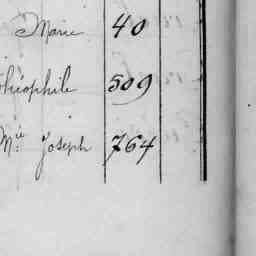 Marie 40
Théophile 509
Mie Joseph 764